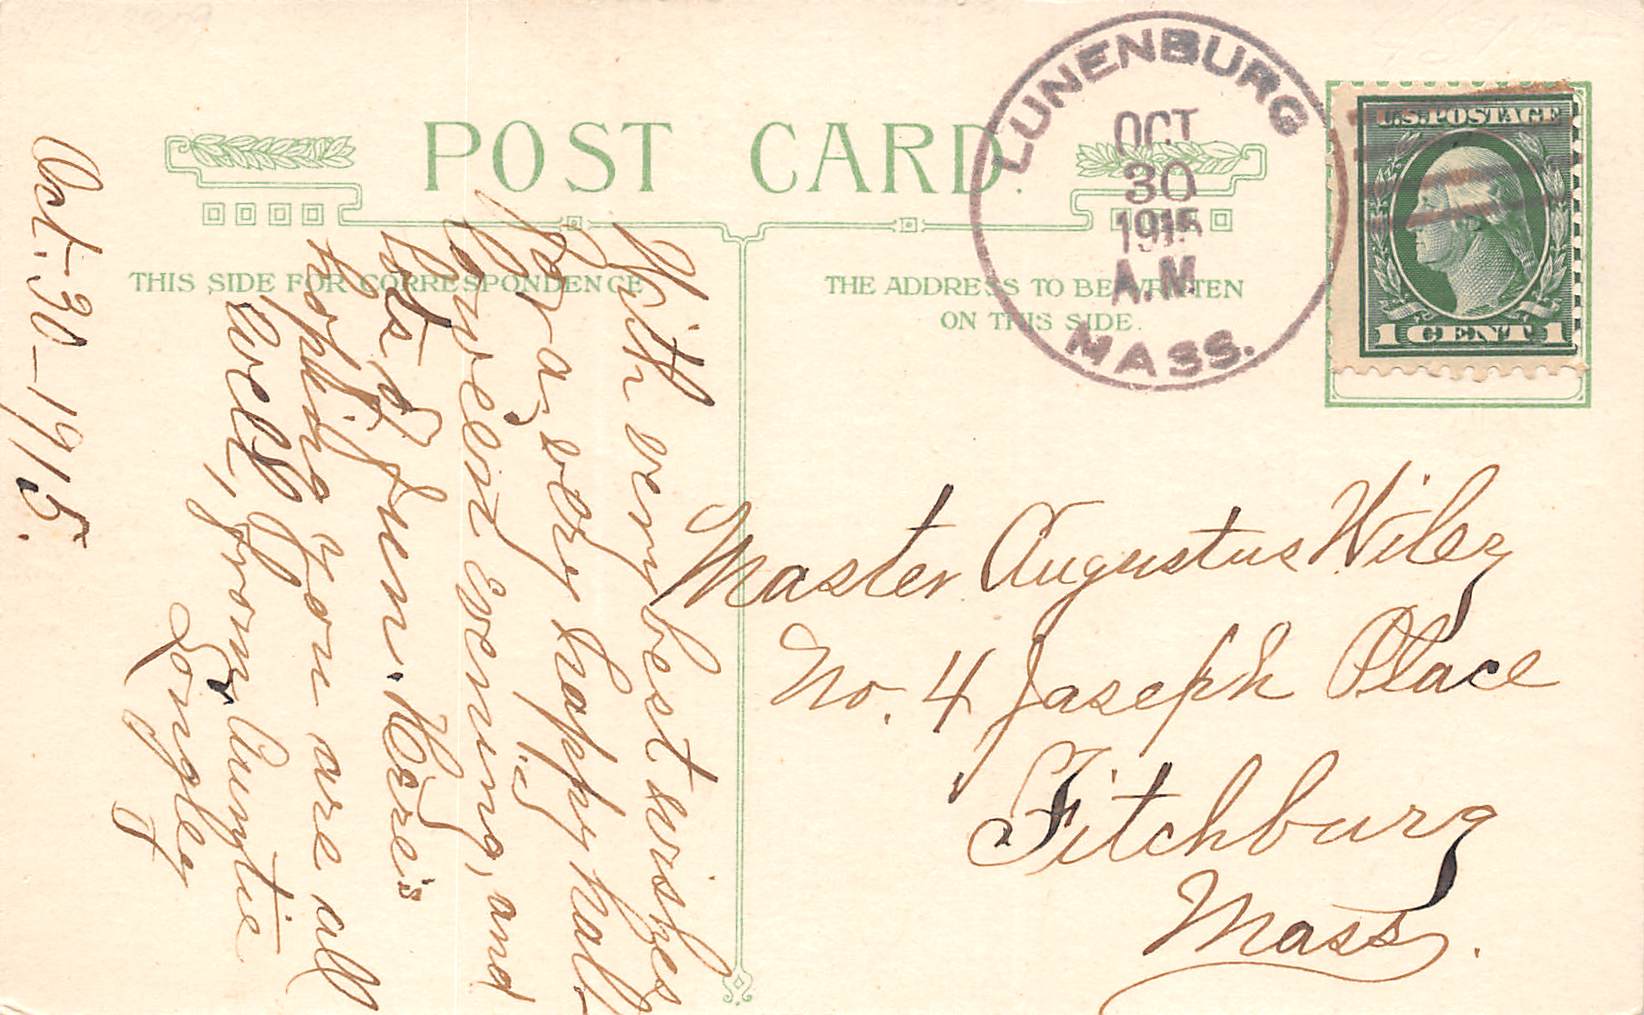 POST CARD.
THIS SIDE FOR CORRESPONDENCE
THE ADDRESS TO BE WRITTEN
ON THIS SIDE.
LUNENBURG
OCT
30
1915
A.M.
MASS.
U.S. POSTAGE
1 CENT 1
Oct. 30 - 1915.
With very best wishes
for a very happy hall-
owe'en evening, and
lots of fun. Here's
hoping you are all
well, from Auntie
Longley
Master Augustus Wiley
No. 4 Joseph Place
Fitchburg
Mass.